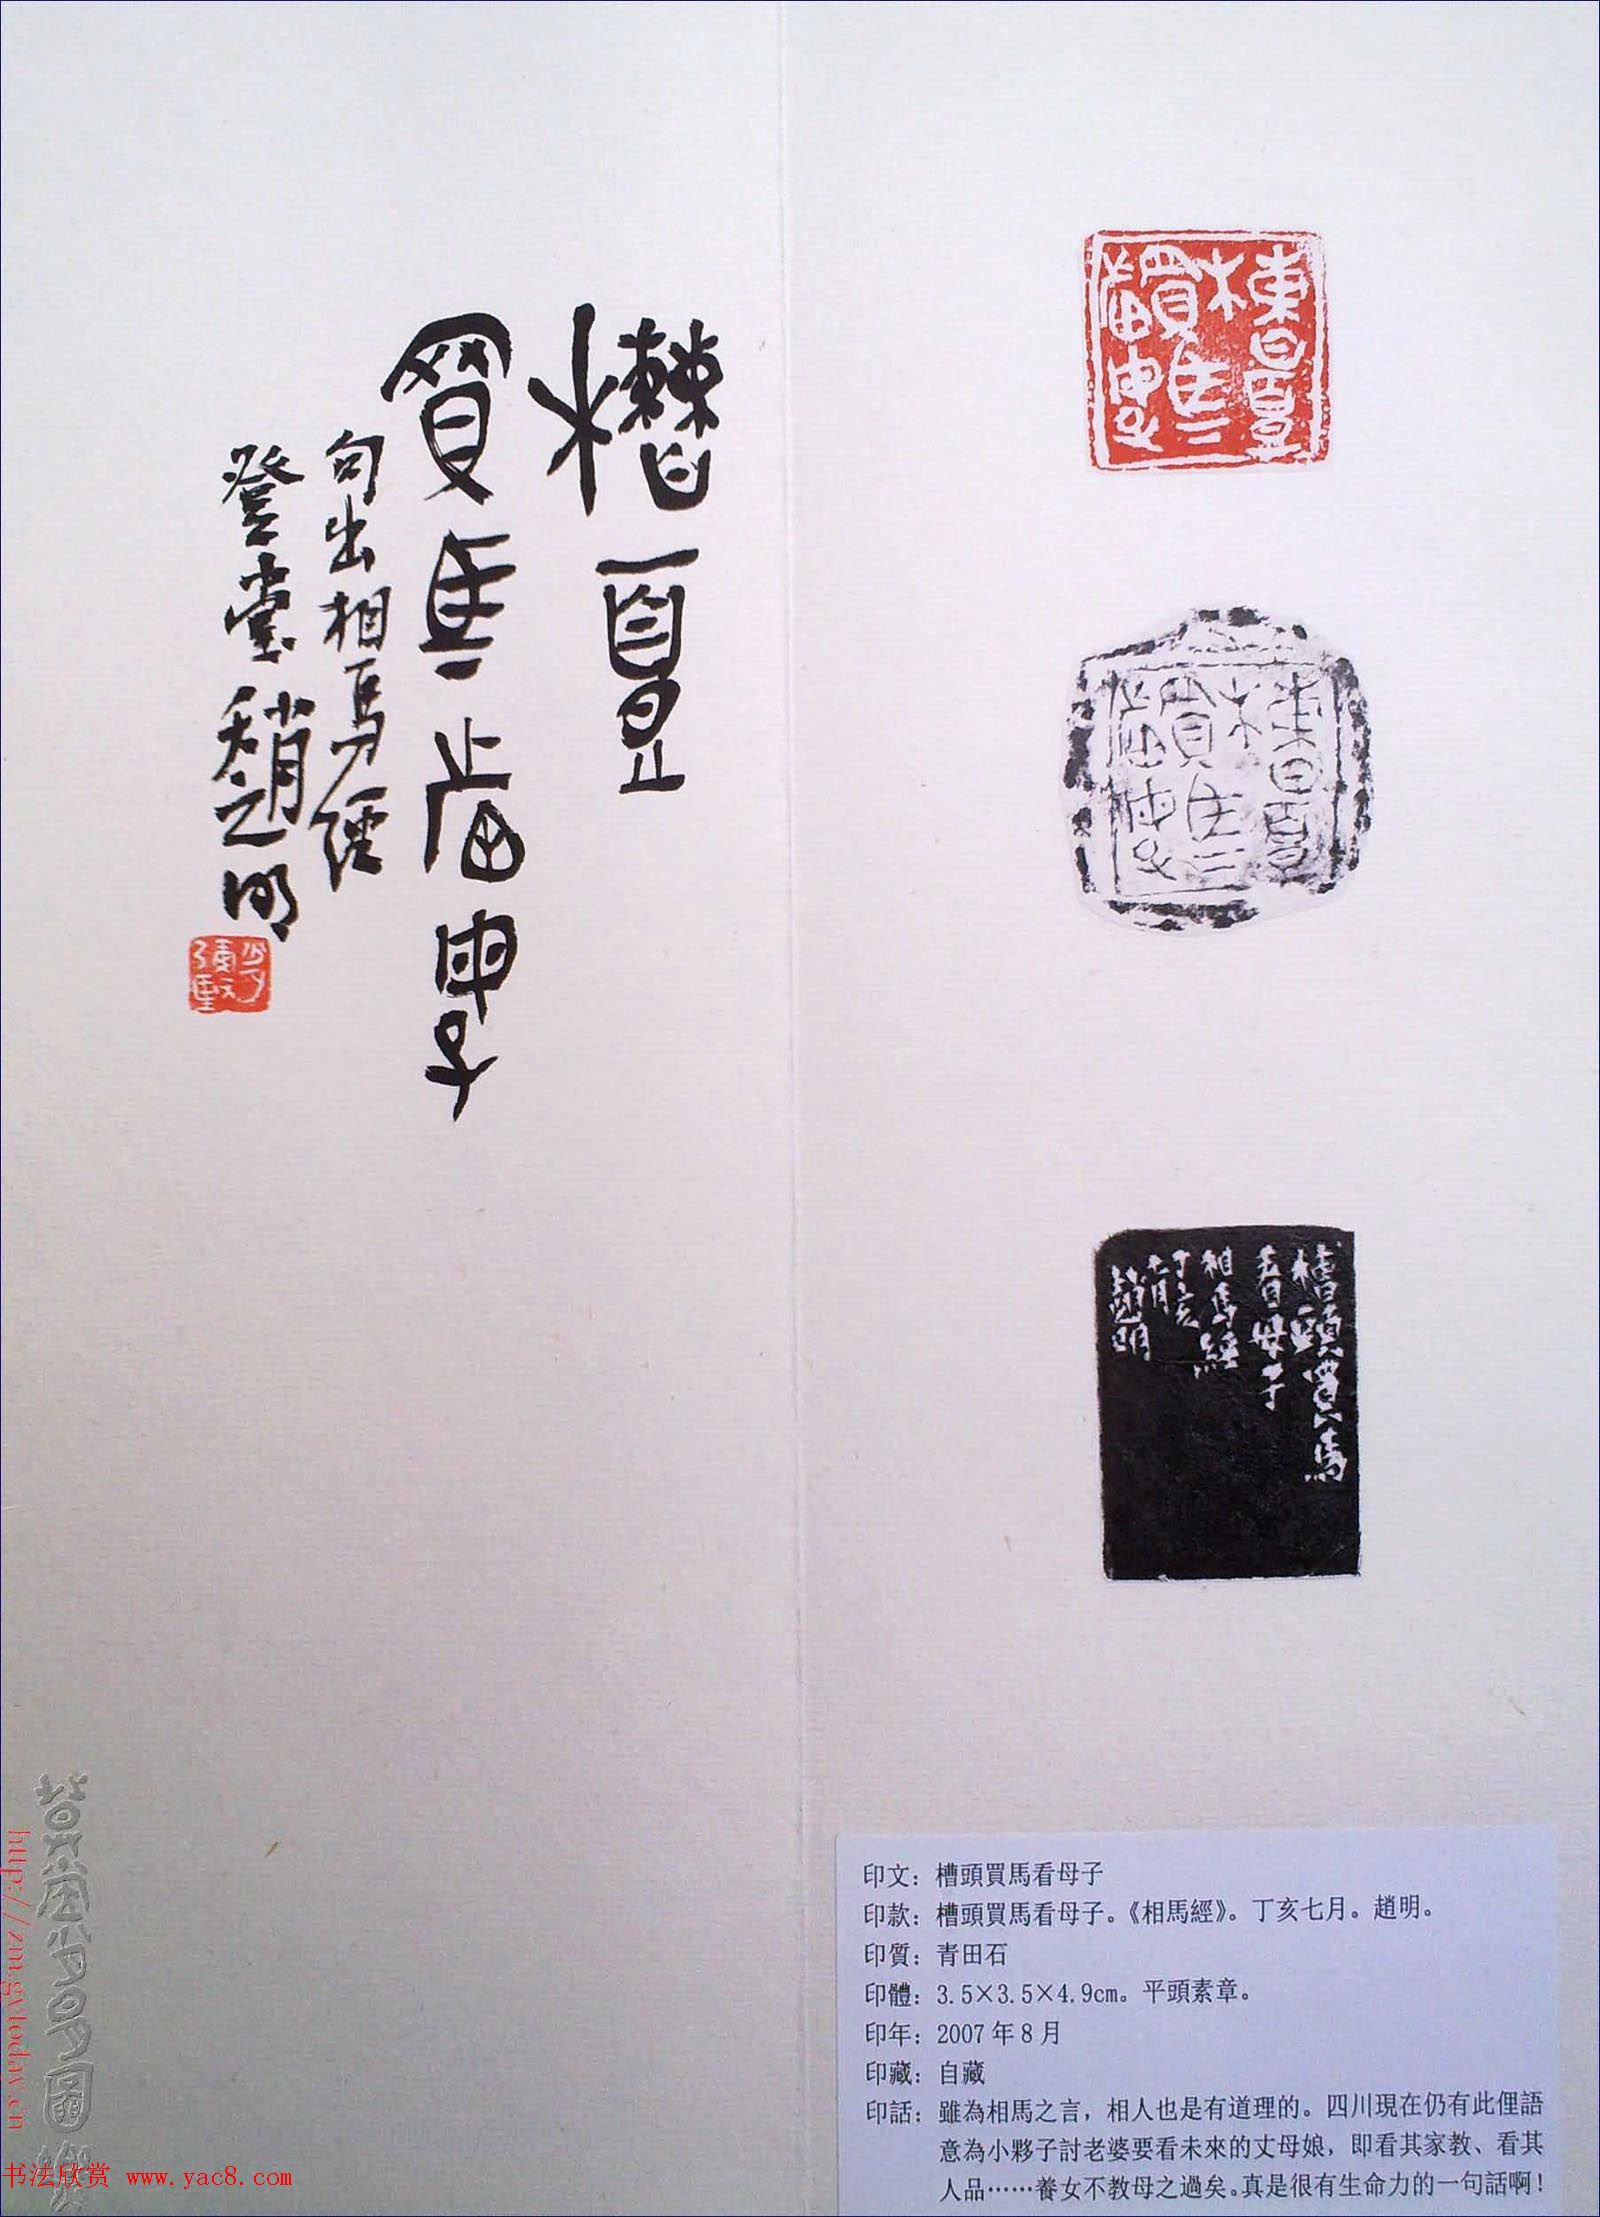 槽頭
買馬看母子
句出相馬經
登堂趙明
槽頭買馬
看母子
相馬經
丁亥
七月
趙明
印文：槽頭買馬看母子
印款：槽頭買馬看母子。《相馬經》。丁亥七月。趙明。
印質：青田石
印體：3.5×3.5×4.9cm。平頭素章。
印年：2007年8月
印藏：自藏
印話：雖為相馬之言，相人也是有道理的。四川現在仍有此俚語
意為小夥子討老婆要看未來的丈母娘，即看其家教、看其
人品……養女不教母之過矣。真是很有生命力的一句話啊！
http://znm.gytoday.cn
书法欣赏 www.yac8.com